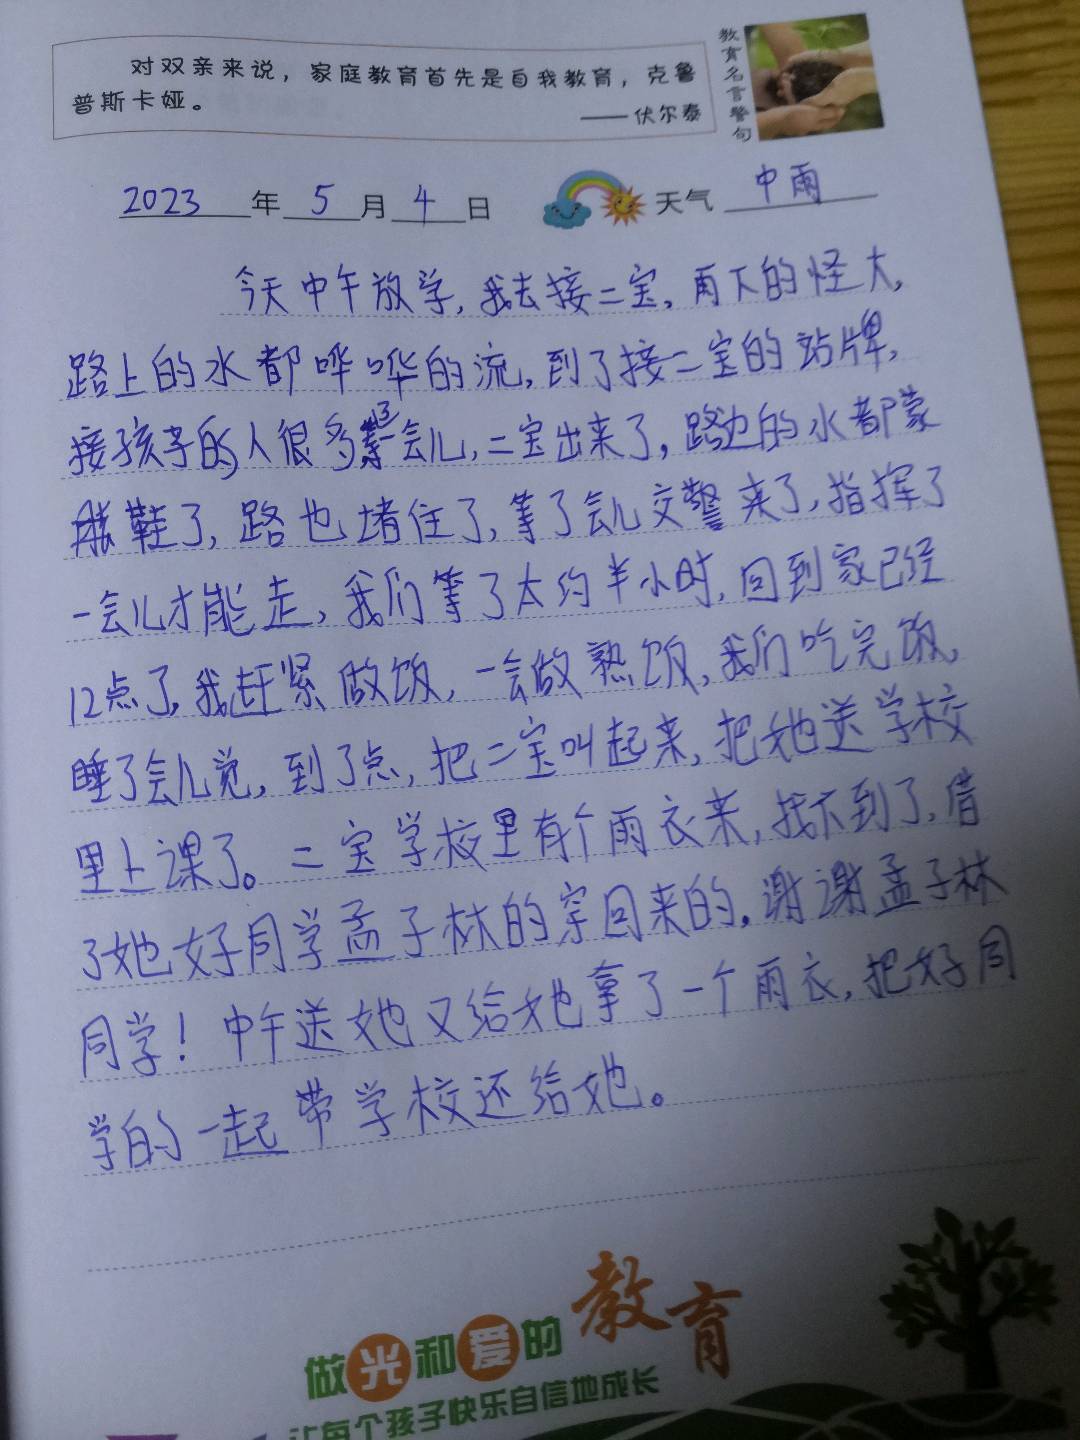 对双亲来说，家庭教育首先是自我教育，克鲁
普斯卡娅。
——伏尔泰
教育名言警句
2023年5月4日 天气 中雨
今天中午放学，我去接二宝，雨下的怪大，
路上的水都哗哗的流，到了接二宝的站牌，
接孩子的人很多，等了会儿，二宝出来了，路边的水都蒙
鞋了，路也堵住了，等了会儿交警来了，指挥了
一会儿才能走，我们等了大约半小时，回到家已经
12点了，我赶紧做饭，一会做熟饭，我们吃完饭，
睡了会儿觉，到了点，把二宝叫起来，把她送学校
里上课了。二宝学校里有个雨衣来，找不到了，借
了她好同学孟子林的穿回来的，谢谢孟子林
同学！中午送她又给她拿了一个雨衣，把好同
学的一起带学校还给她。
做光和爱的教育
让每个孩子快乐自信地成长